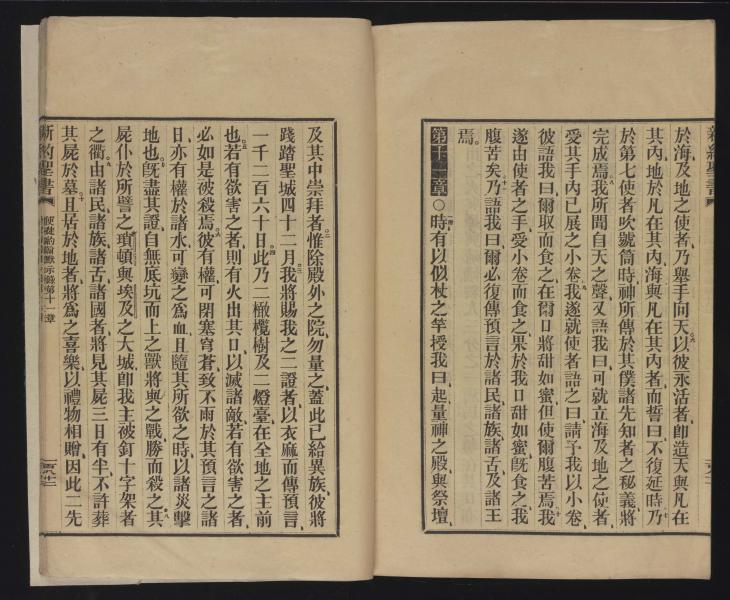 於海及地之使者乃舉手向天以彼永活者卽造天與凡在
其內地於凡在其內海與凡在其內者而誓曰不復延時乃
於第七使者吹號筒時神所傳於其僕諸先知者之秘義將
完成焉我所聞自天之聲又語我曰可就立海及地之使者
受其手內已展之小卷我遂就使者語之曰請予我以小卷
彼語我曰爾取而食之在爾口將甜如蜜但使爾腹苦焉我
遂由使者之手受小卷而食之果於我口甜如蜜旣食之我
腹苦矣乃語我曰爾必復傳預言於諸民諸族諸舌及諸王
焉
第十一章○時有以似杖之竿授我曰起量神之殿與祭壇
及其中崇拜者惟除殿外之院勿量之蓋此已給異族彼將
踐踏聖城四十二月我將賜我之二證者以衣麻而傳預言
一千二百六十日此乃二橄欖樹及二燈臺在全地之主前
也若有欲害之者則有火出其口以滅諸敵若有欲害之者
必如是被殺焉彼有權可閉塞穹蒼致不雨於其預言之諸
日亦有權於諸水可變之爲血且隨其所欲之時以諸災擊
地也旣盡其證自無底坑而上之獸將與之戰勝而殺之其
屍仆於所譬之瑣頓與埃及之大城卽我主被釘十字架者
之衢由諸民諸族諸舌諸國者將見其屍三日有半不許葬
其屍於墓且居於地者將爲之喜樂以禮物相贈因此二先
新約聖書
使徒約翰默示錄第十一章